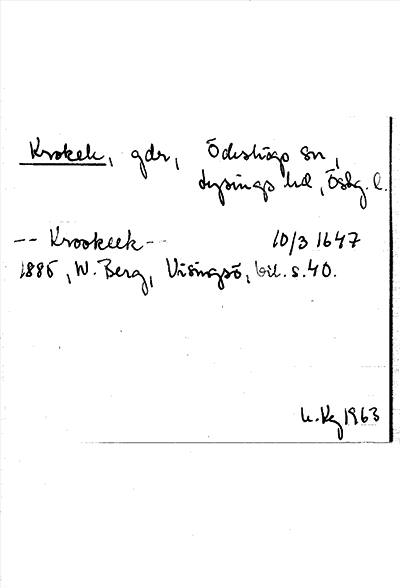 Krokek, gdr, Ödeshögs sn,
Lysings hd, Östg. l.
-- Krookeek --   10/3 1647
1885, W. Berg, Visingsö, bil. s. 40.
1963